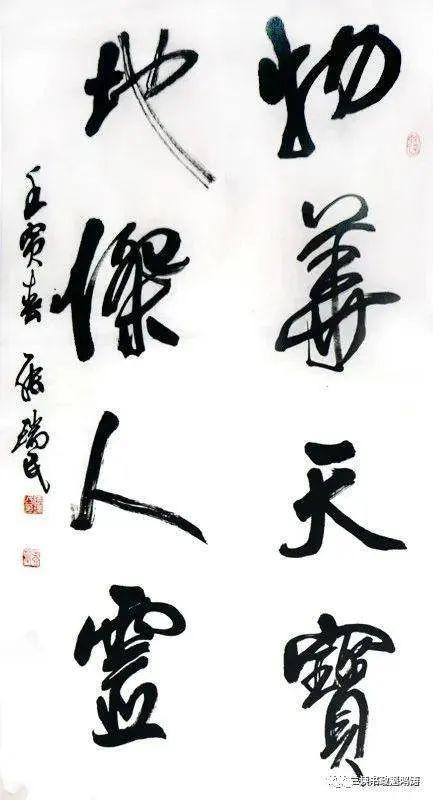 物華天寶
地傑人靈
壬寅春
瑞民